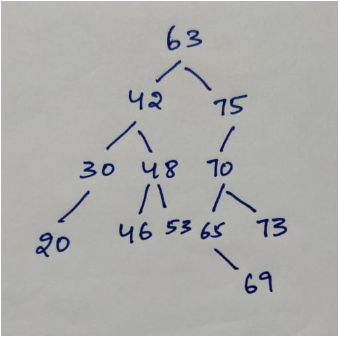 63
42 75
30 48 70
20 46 53 65 73
69